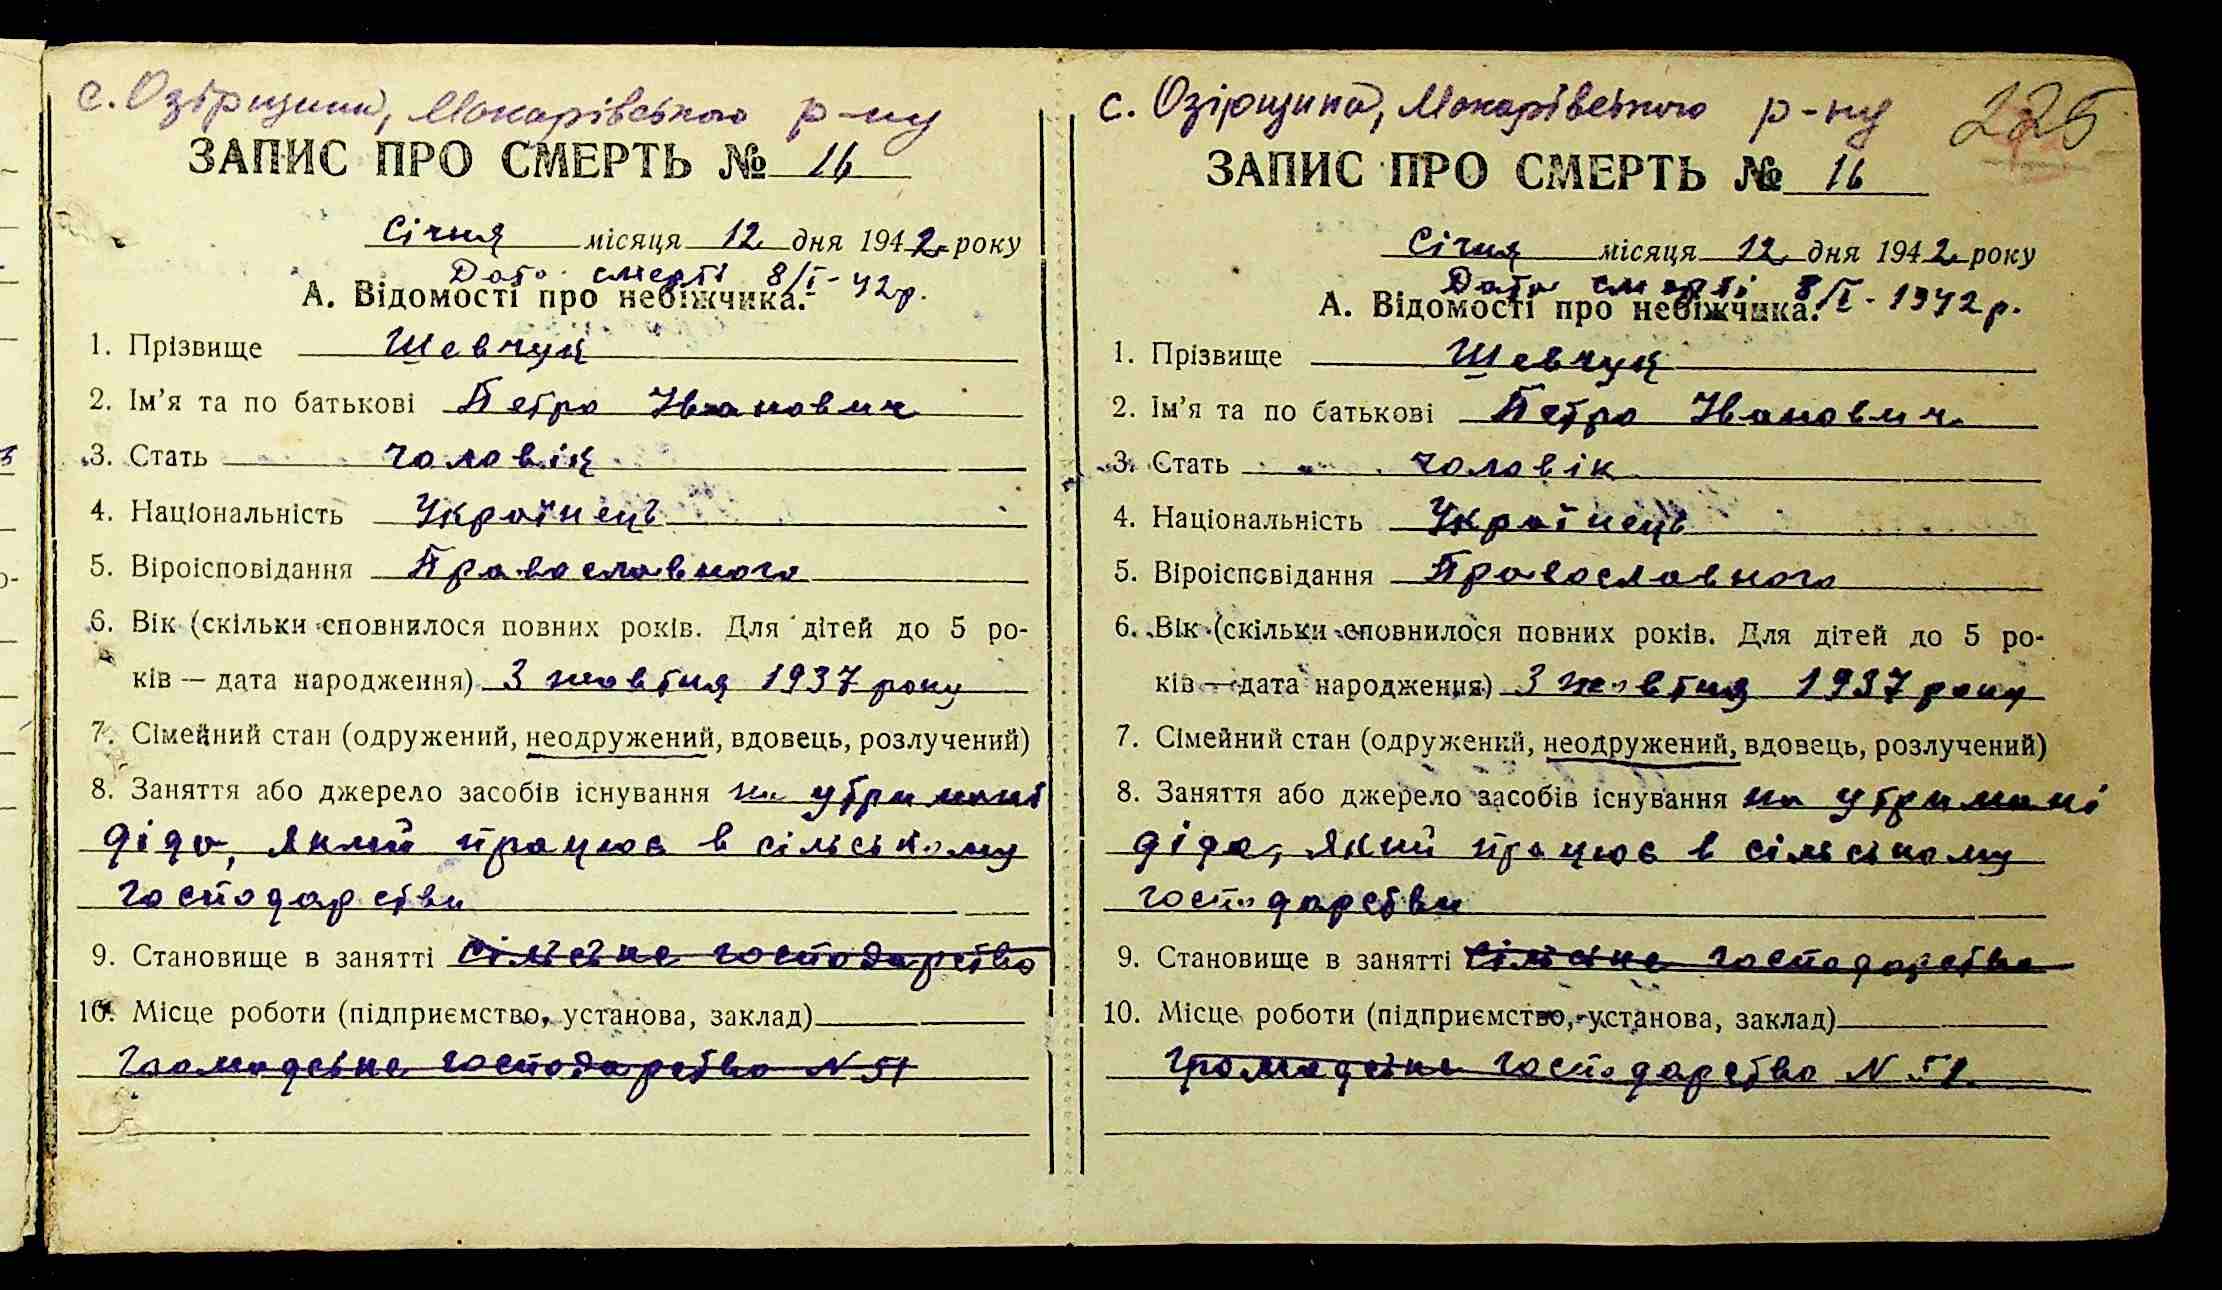 с. Озірщина, Макарівського р-ну
ЗАПИС ПРО СМЕРТЬ № 16
Січня місяця 12 дня 1942 року
Дата смерті 8/I - 42 р.
А. Відомості про небіжчика.
1. Прізвище Шевчук
2. Ім’я та по батькові Петро Іванович
3. Стать чоловік
4. Національність Українець
5. Віроісповідання Православного
6. Вік (скільки сповнилося повних років. Для дітей до 5 ро-
ків — дата народження) 3 жовтня 1937 року
7. Сімейний стан (одружений, неодружений, вдовець, розлучений)
8. Заняття або джерело засобів існування на утримані
діда, який працює в сільському
господарстви
9. Становище в занятті сільське господарство
10. Місце роботи (підприємство, установа, заклад)
громадське господарство N 51
с. Озірщина, Макарівського р-ну 225
ЗАПИС ПРО СМЕРТЬ № 16
Січня місяця 12 дня 1942 року
Дата смерті 8/I - 1942 р.
А. Відомості про небіжчика.
1. Прізвище Шевчук
2. Ім’я та по батькові Петро Іванович
3. Стать чоловік
4. Національність Українець
5. Віроісповідання Православного
6. Вік (скільки сповнилося повних років. Для дітей до 5 ро-
ків — дата народження) 3 жовтня 1937 року
7. Сімейний стан (одружений, неодружений, вдовець, розлучений)
8. Заняття або джерело засобів існування на утримані
діда, який працює в сільському
господарстви
9. Становище в занятті сільське господарство
10. Місце роботи (підприємство, установа, заклад)
громадське господарство N 51